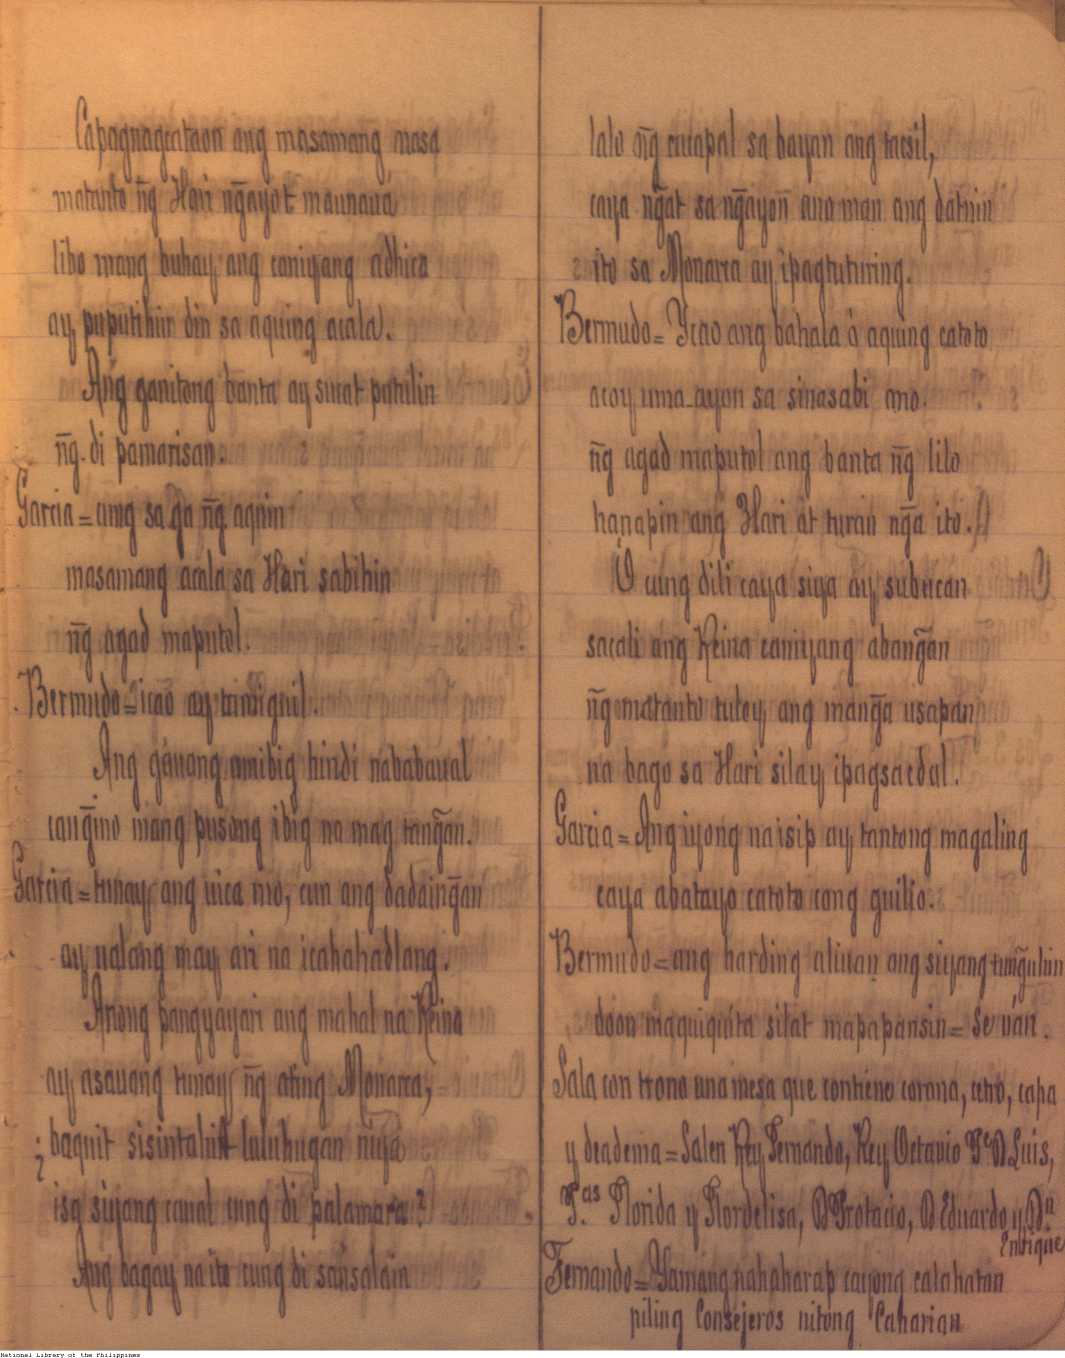 Capagnagcataon ang masamang nasa
matanto n̄g Hari n̄gayo't maunaua
libo mang buhay ang caniyang adhica
ay puputihin din sa aquing acala.
Ang ganitong banta ay sucat putilin
n̄g di pamarisan.
Garcia = cung sa ga n̄g aquin
masamang acala sa Hari sabihin
n̄g agad maputol.
Bermudo = icao ay tumiguil.
Ang gauang omibig hindi nababaual
can̄gino mang pusong ibig na mag tan̄gan.
Garcia = tunay ang uica mo, cun ang dadain̄gan
ay ualang may ari na icahahadlang.
Anong pangyayari ang mahal na Reina
ay asauang tunay n̄g ating Monarca,
¿ baquit sisintahin't laluhugan niya
isa siyang caual cung di palamara?
Ang bagay na ito cung di sansalain
lalo n̄g cucapal sa bayan ang tacsil,
caya n̄gat sa n̄gayon ano man ang datnin
ito sa Monarca ay ipagtuturing.
Bermudo = Ycao ang bahala ó aquing catoto
acoy uma-ayon sa sinasabi mo.
n̄g agad maputol ang banta n̄g lilo
hanapin ang Hari at turan n̄ga ito.
O cung dili caya siya ay subucan
sacali ang Reina caniyang aban̄gan
n̄g matanto tuloy ang man̄ga usapan
na bago sa Hari silay ipagsacdal.
Garcia = Ang iyong na isip ay tantong magaling
caya abatayo catoto cong guilio.
Bermudo = ang harding aliuan ang siyang tun̄guhin
doon maquiquita silat mapapansin = Se ván.
Sala con trono una mesa que contiene corona, cetro, capa
y deadema = Salen Rey Fernando, Rey Octavio Pe. D Luis,
P.as Florida y Flordelisa, D Protacio, D Eduardo y D.n
Enrique
Fernando = Yamang nahaharap cayong calahatan
piling Consejeros nitong Caharian
National Library of the Philippines